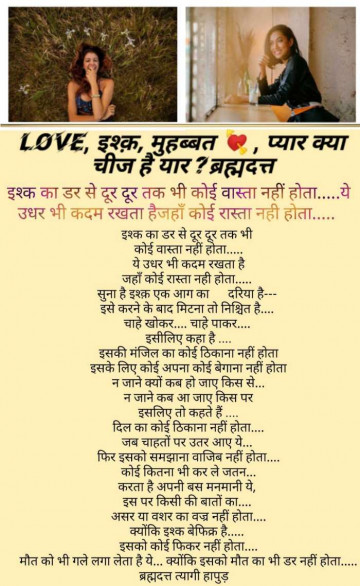 LOVE, इश्क़, मुहब्बत 💘, प्यार क्या
चीज है यार ? ब्रह्मदत्त
इश्क का डर से दूर दूर तक भी कोई वास्ता नहीं होता.....ये
उधर भी कदम रखता हैजहाँ कोई रास्ता नही होता.....
इश्क का डर से दूर दूर तक भी
कोई वास्ता नहीं होता.....
ये उधर भी कदम रखता है
जहाँ कोई रास्ता नही होता.....
सुना है इश्क़ एक आग का दरिया है---
इसे करने के बाद मिटना तो निश्चित है....
चाहे खोकर.... चाहे पाकर....
इसीलिए कहा है ....
इसकी मंजिल का कोई ठिकाना नहीं होता
इसके लिए कोई अपना कोई बेगाना नहीं होता
न जाने क्यों कब हो जाए किस से...
न जाने कब आ जाए किस पर
इसलिए तो कहते हैं ....
दिल का कोई ठिकाना नहीं होता....
जब चाहतों पर उतर आए ये...
फिर इसको समझाना वाजिब नहीं होता....
कोई कितना भी कर ले जतन...
करता है अपनी बस मनमानी ये,
इस पर किसी की बातों का....
असर या वशर का वज्र नहीं होता....
क्योंकि इश्क बेफ़िक्र है.....
इसको कोई फिकर नहीं होता....
मौत को भी गले लगा लेता है ये... क्योंकि इसको मौत का भी डर नहीं होता.....
ब्रह्मदत्त त्यागी हापुड़